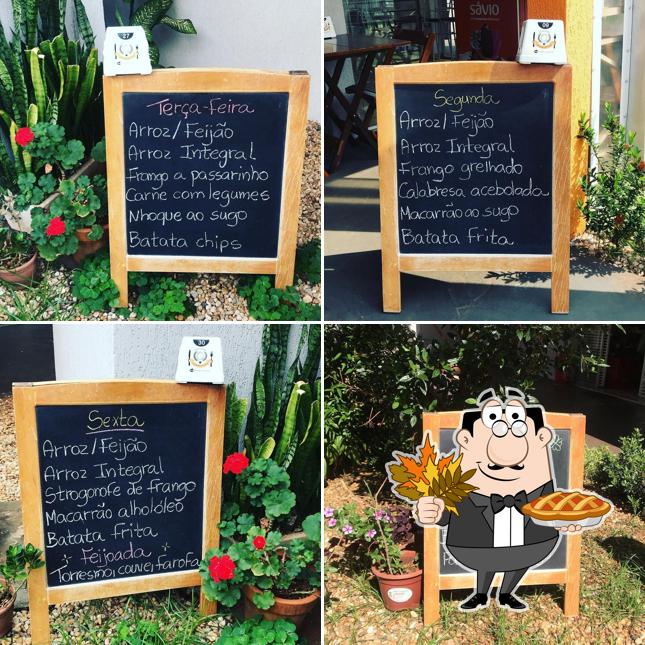 27
Terça-Feira
Arroz/Feijão
Arroz Integral
Frango a passarinho
Carne com legumes
Nhoque ao sugo
Batata chips
sávio
Segunda
Arroz/Feijão
Arroz Integral
Frango grelhado
Calabresa acebolada
Macarrão ao sugo
Batata Frita
30
Sexta
Arroz/Feijão
Arroz Integral
Strogonofe de frango
Macarrão alho/óleo
Batata frita
Feijoada
Torresmo, couve, farofa